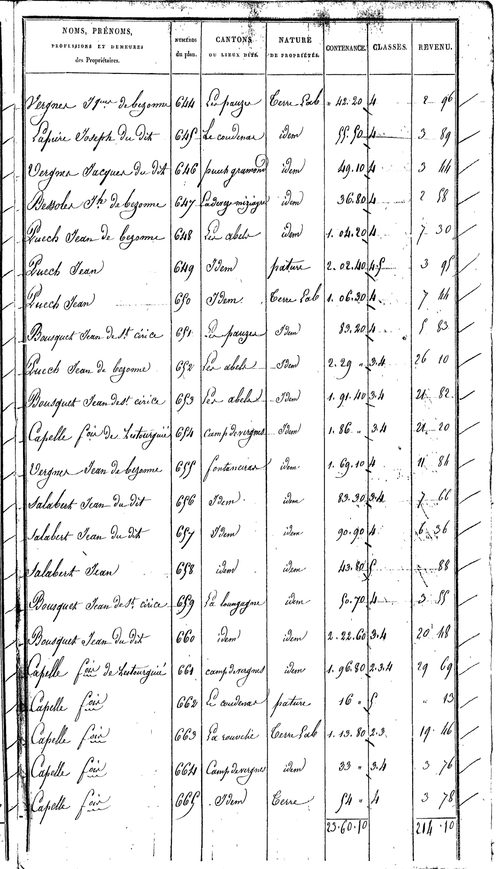 NOMS, PRÉNOMS, PROFESSIONS ET DEMEURES des Propriétaires. NUMÉROS du plan. CANTONS OU LIEUX DITS. NATURE DE PROPRIÉTÉS. CONTENANCE. CLASSES. REVENU.
Vergnes de bezonne 644 Les pauzes Terre Lab " 42.20 4 2 96
Lapire Joseph du dit 645 Le coudenas idem 55.50 4 3 89
Vergnes Jacques du dit 646 puech gramond idem 49.10 4 3 44
Bessoles Jh de bezonne 647 idem 36.80 4 2 58
Puech Jean de bezonne 648 Les abels idem 1. 04.20 4 7 30
Puech Jean 649 Idem pature 2. 02.40 4.5 3 95
Puech Jean 650 Idem Terre Lab 1. 06.30 4 7 44
Bousquet Jean de St. cirice 651 Les pauzes Idem 83.20 4 5 83
Puech Jean de bezonne 652 Les abels Idem 2. 29 " 3.4 26 10
Bousquet Jean de St. cirice 653 Les abels Idem 1. 91.40 3.4 21 82
Capelle fois de 654 camp de vergnes Idem 1. 86 " 3.4 21 20
Vergnes Jean de bezonne 655 idem 1. 69.10 4 11 84
Salabert Jean du dit 656 Idem idem 83.30 3.4 7 66
Salabert Jean du dit 657 Idem idem 90.90 4 6 36
Salabert Jean 658 idem idem 43.80 5 " 88
Bousquet Jean de St. cirice 659 La idem 50.70 4 3 55
Bousquet Jean du dit 660 idem idem 2. 22.60 3.4 20 48
Capelle fois de 661 camp de vergnes idem 1. 96.80 2.3.4 29 69
Capelle fois 662 Le coudenas pature 16 " 5 " 13
Capelle fois 663 Terre Lab 1. 13.80 2.3. 19 46
Capelle fois 664 Camp de vergnes idem 33 " 3.4 3 76
Capelle fois 665 Idem Terre 54 " 4 3 78
23.60.10 214.10